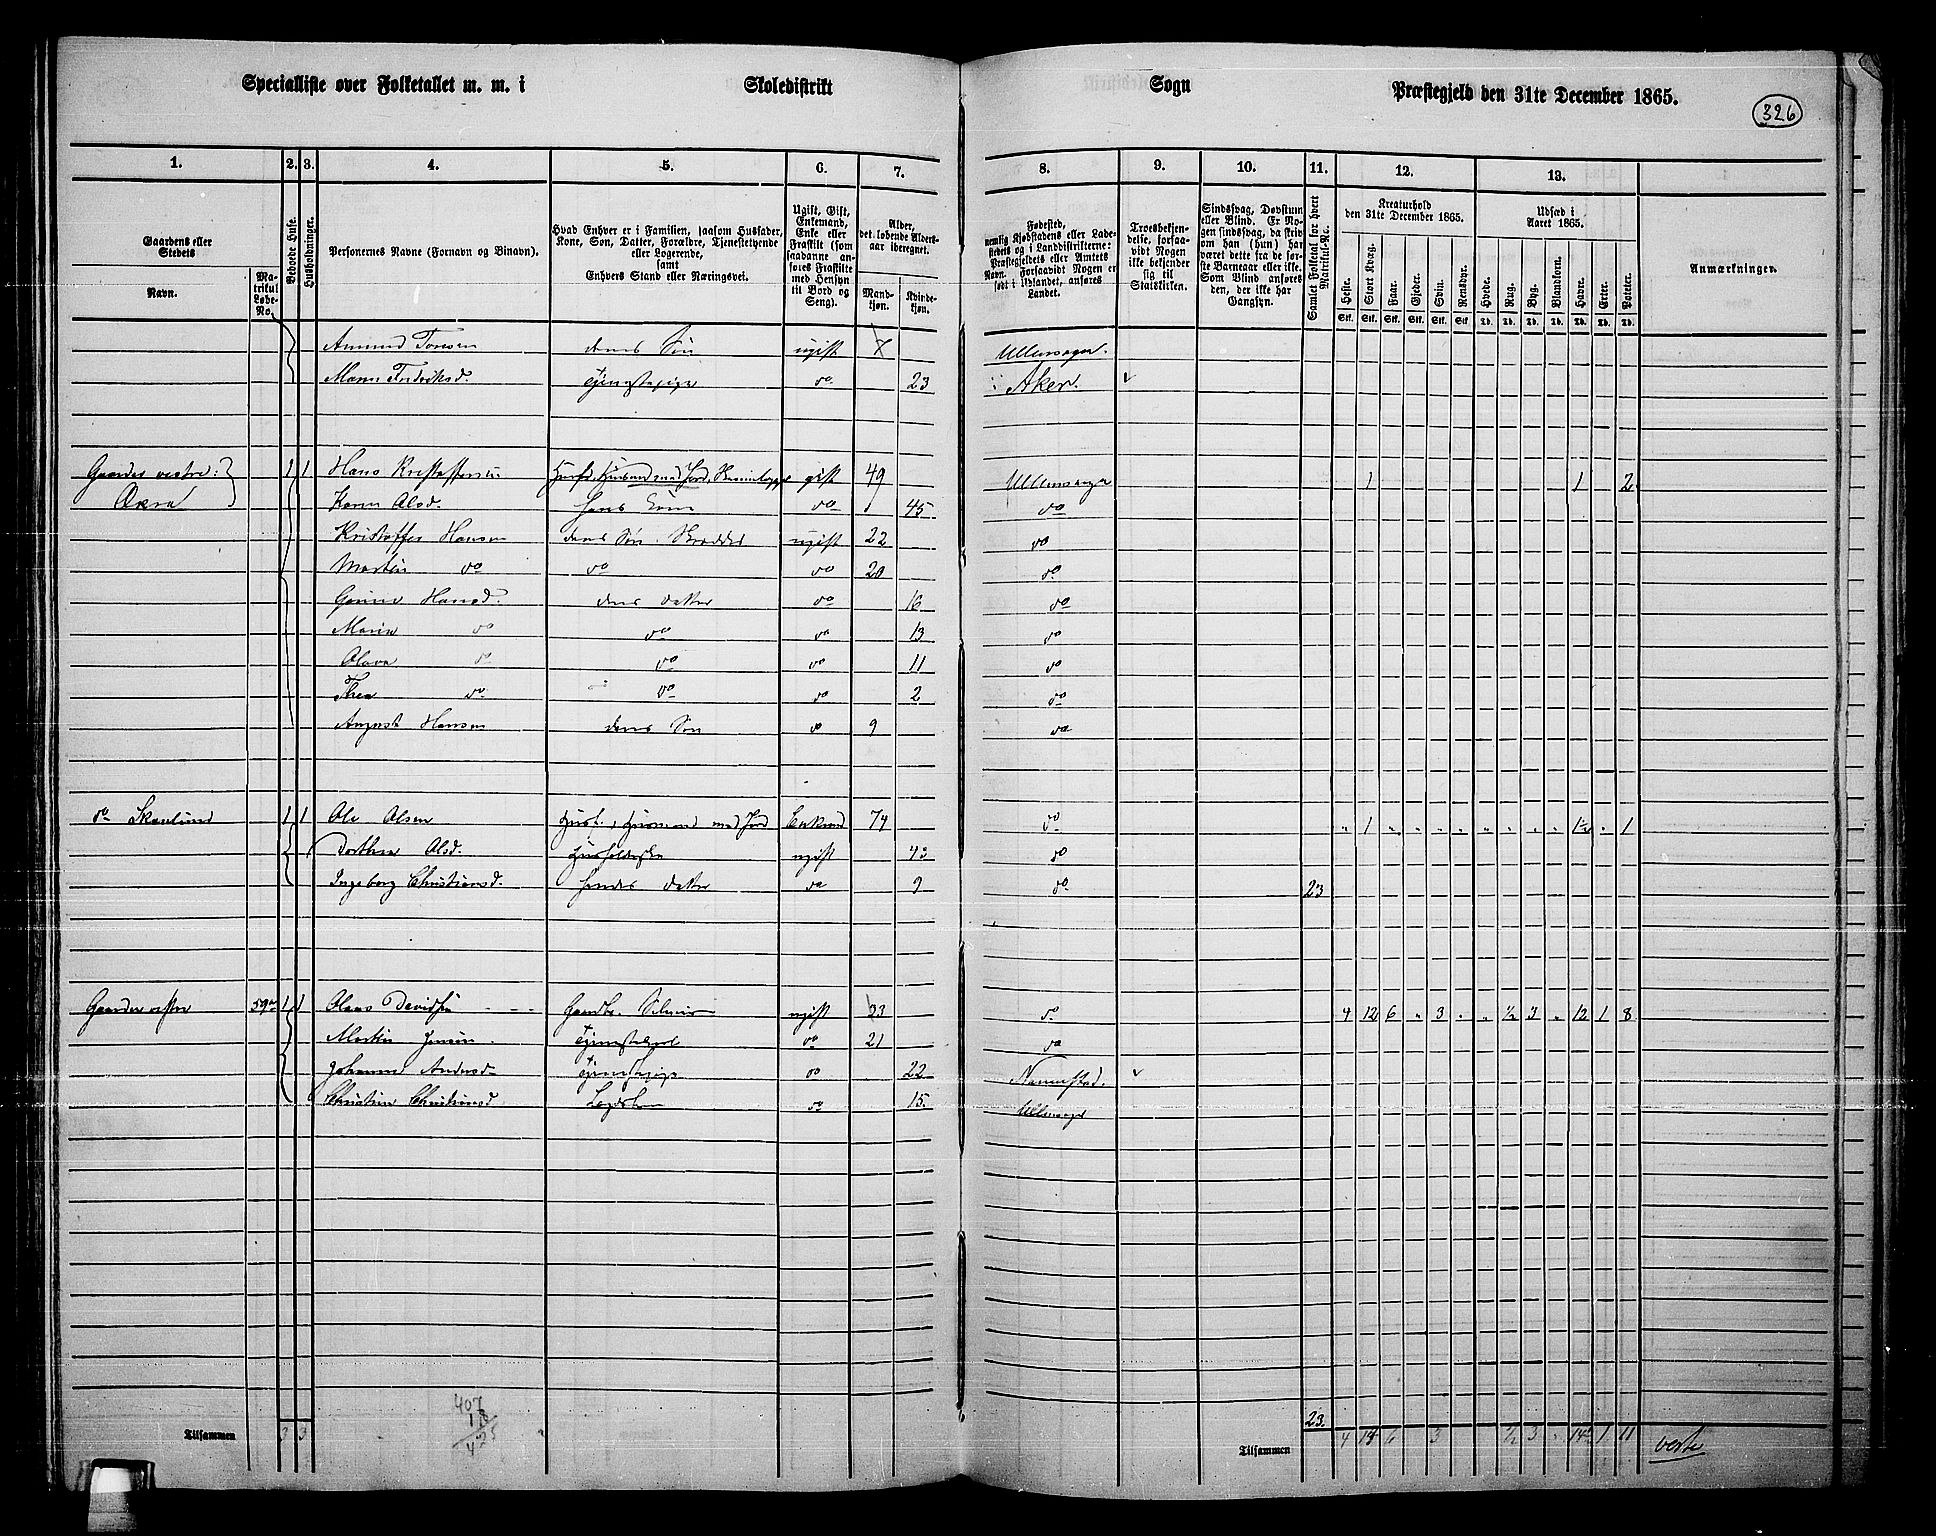 Specialliste over Folketallet m. m. i Skoledistrikt Sogn Præstegjeld den 31te December 1865.
326
1. 2. 3. 4. 5. 6. 7. 8. 9. 10. 11. 12. 13.
Gaardens eller Stedets
Navn.
Matrikul Løbe-No.
Beboede Huse.
Husholdninger.
Personernes Navne (Fornavn og Binavn).
Hvad Enhver er i Familien, saasom Husfader, Kone, Søn, Datter, Forældre, Tjenestetyende eller Logerende, samt Enhvers Stand eller Næringsvei.
Ugift, Gift, Enkemand, Enke eller Fraskilt (som saadanne anføres Fraskilte med Hensyn til Bord og Seng).
Alder, det løbende Aldersaar iberegnet.
Mandkjøn. Kvindekjøn.
Fødested, nemlig Kjøbstadens eller Ladestedets og i Landdistrikterne: Præstegjeldets eller Amtets Navn. Forsaavidt Nogen er født i Udlandet, anføres Landet.
Troesbekjendelse, forsaavidt Nogen ikke bekjender sig til Statskirken.
Sindssvag, Døvstum eller Blind. Er Nogen sindssvag, da skrives om han (hun) har været dette fra de første Barneaar eller ikke. Som Blind anføres den, der ikke har Gangsyn.
Samlet Folketal for hvert Matrikul-No.
Kreaturhold den 31te December 1865.
Heste. Stort Kvæg. Faar. Gjeder. Sviin. Rensdyr.
Udsæd i Aaret 1865.
Hvede. Rug. Byg. Blandkorn. Havre. Erter. Poteter.
Stk. Stk. Stk. Stk. Stk. Stk. Td. Td. Td. Td. Td. Td. Td.
Anmærkninger.
Amund Toresen deres Søn ugift 7 Ullensager.
Maren Fredriksd. Tjenestepige do 23 Aker.
Gaarder vestre: 1 1 Hans Kristoffersen Husf., Husmand med Jord, gift 49 Ullensager 1 1 2
Karen Olsd. hans Kone do 45 do
Kristoffer Hansen deres Søn, Skrædder ugift 22 do
Martin do do do 20 do
Hansd. deres Datter do 16 do
Maren do do do 13 do
Olava do do do 11 do
Thea do do do 2 do
August Hansen deres Søn do 9 do
do 1 1 Ole Olsen Husf., Husmand med Jord Enkemd 74 do " 1 " " " " " " " " 1½ " 1
Dorthea Olsd. Husholderske ugift do
Ingeborg Christiansd. hendes Datter do 9 do 23
Gaarder vestre 59 1 1 Davidsen Gaardbr. Selveier ugift 33 do 4 12 6 " 3 " " ½ 3 " 12 1 8
Martin Jensen Tjenestekarl do 21 do
Johanne Andersd. Tjenestepige do 22 Nannestad.
Christine Christiansd. do 15. Ullensager
407
18
425
Tilsammen 3 3
23.
Tilsammen 4 18 6 3 ½ 3 " 14½ 1 11
verte